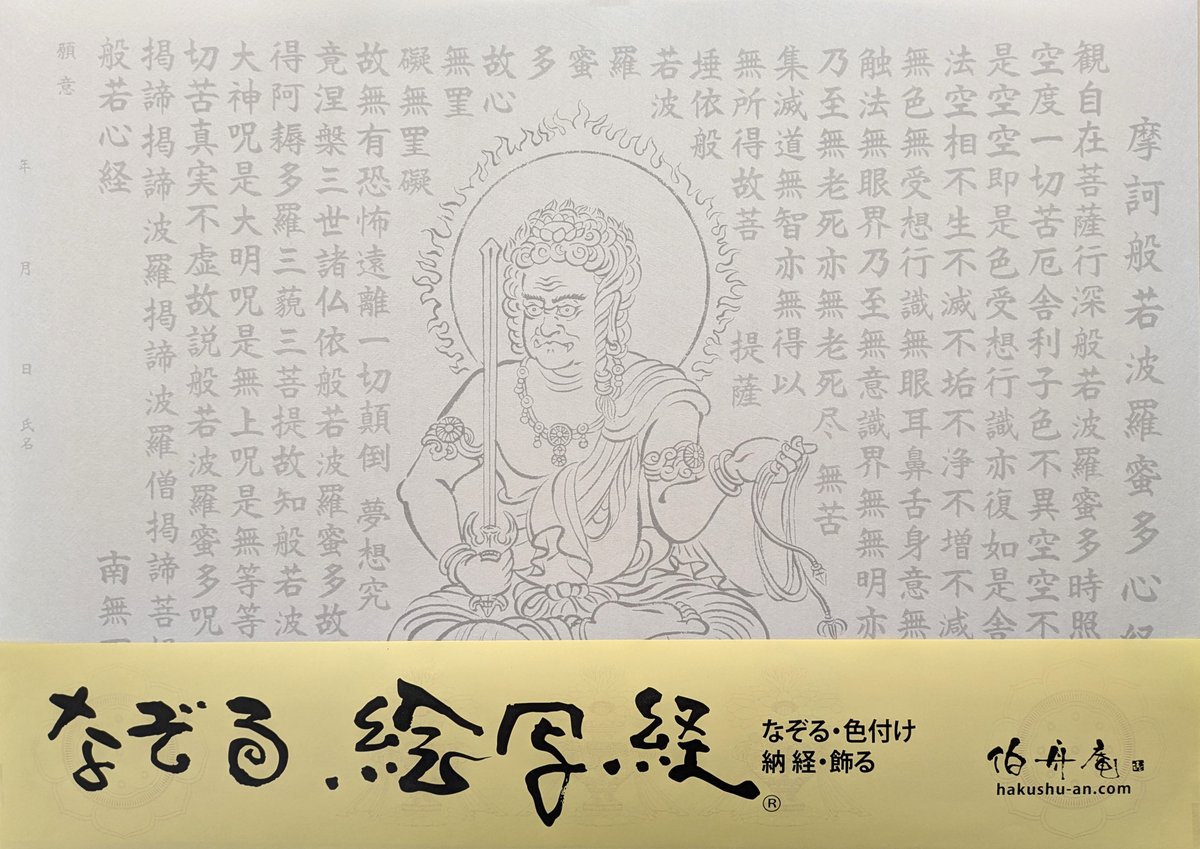 摩訶般若波羅蜜多心経
観自在菩薩行深般若波羅蜜多時照
空度一切苦厄舎利子色不異空空不
是空空即是色受想行識亦復如是舎
法空相不生不滅不垢不浄不増不減
無色無受想行識無眼耳鼻舌身意無
触法無眼界乃至無意識界無無明亦
乃至無老死亦無老死尽 無苦
集滅道無智亦無得以
無所得故菩 提薩
埵依般
若波
羅
蜜
多
故心
無罣
礙無罣礙
故無有恐怖遠離一切顛倒 夢想究
竟涅槃三世諸仏依般若波羅蜜多故
得阿耨多羅三藐三菩提故知般若波
大神呪是大明呪是無上呪是無等等
切苦真実不虚故説般若波羅蜜多呪
掲諦掲諦波羅掲諦波羅僧掲諦菩
般若心経 南無
願意
年 月 日 氏名
なぞる絵写経®
なぞる・色付け
納経・飾る
伯舟庵
hakushu-an.com